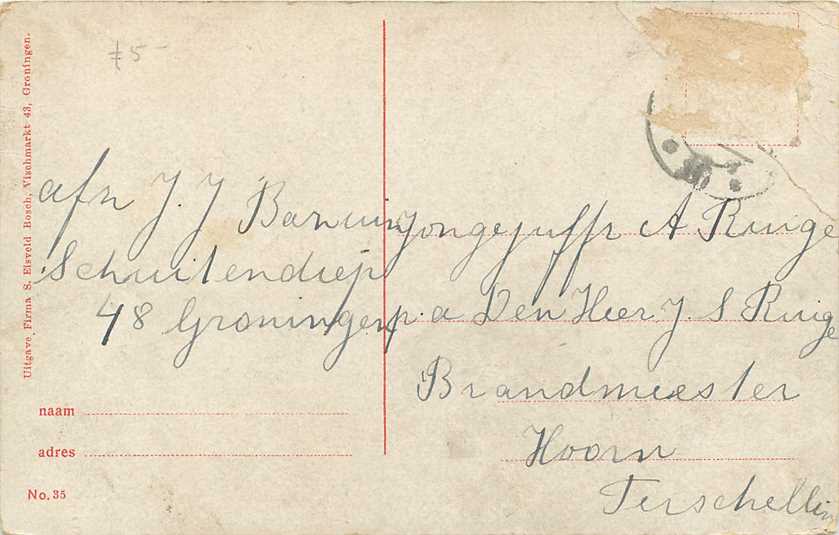 Uitgave, Firma S. Elsveld Bosch, Vischmarkt 43, Groningen.
afn J. J
Schuitendiep
48 Groningen
naam
adres
No. 35
Jongejuffr A Ruige
p. a Den Heer J. S Ruige
Brandmeester
Hoorn
Terschellin